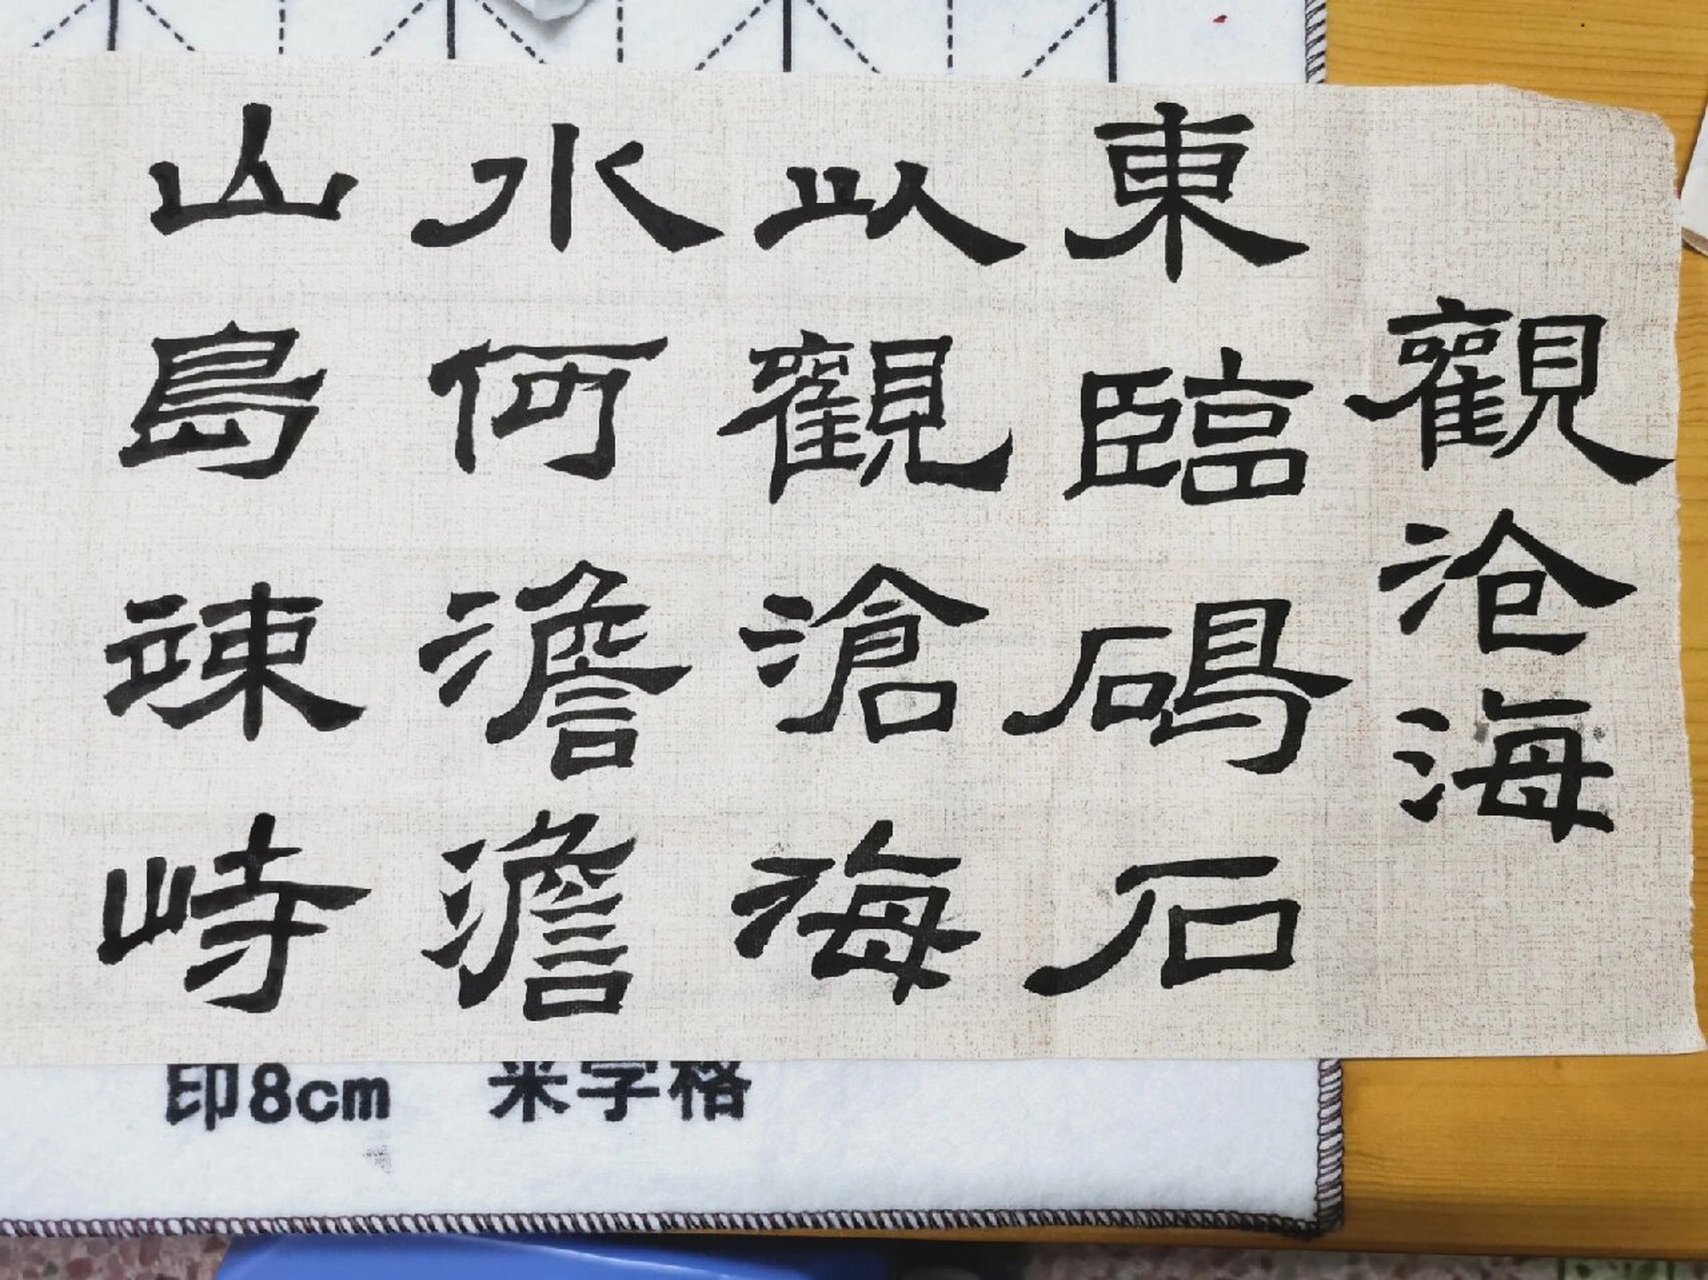 觀沧海
東臨碣石
以觀滄海
水何澹澹
山島竦峙
印8cm 米字格